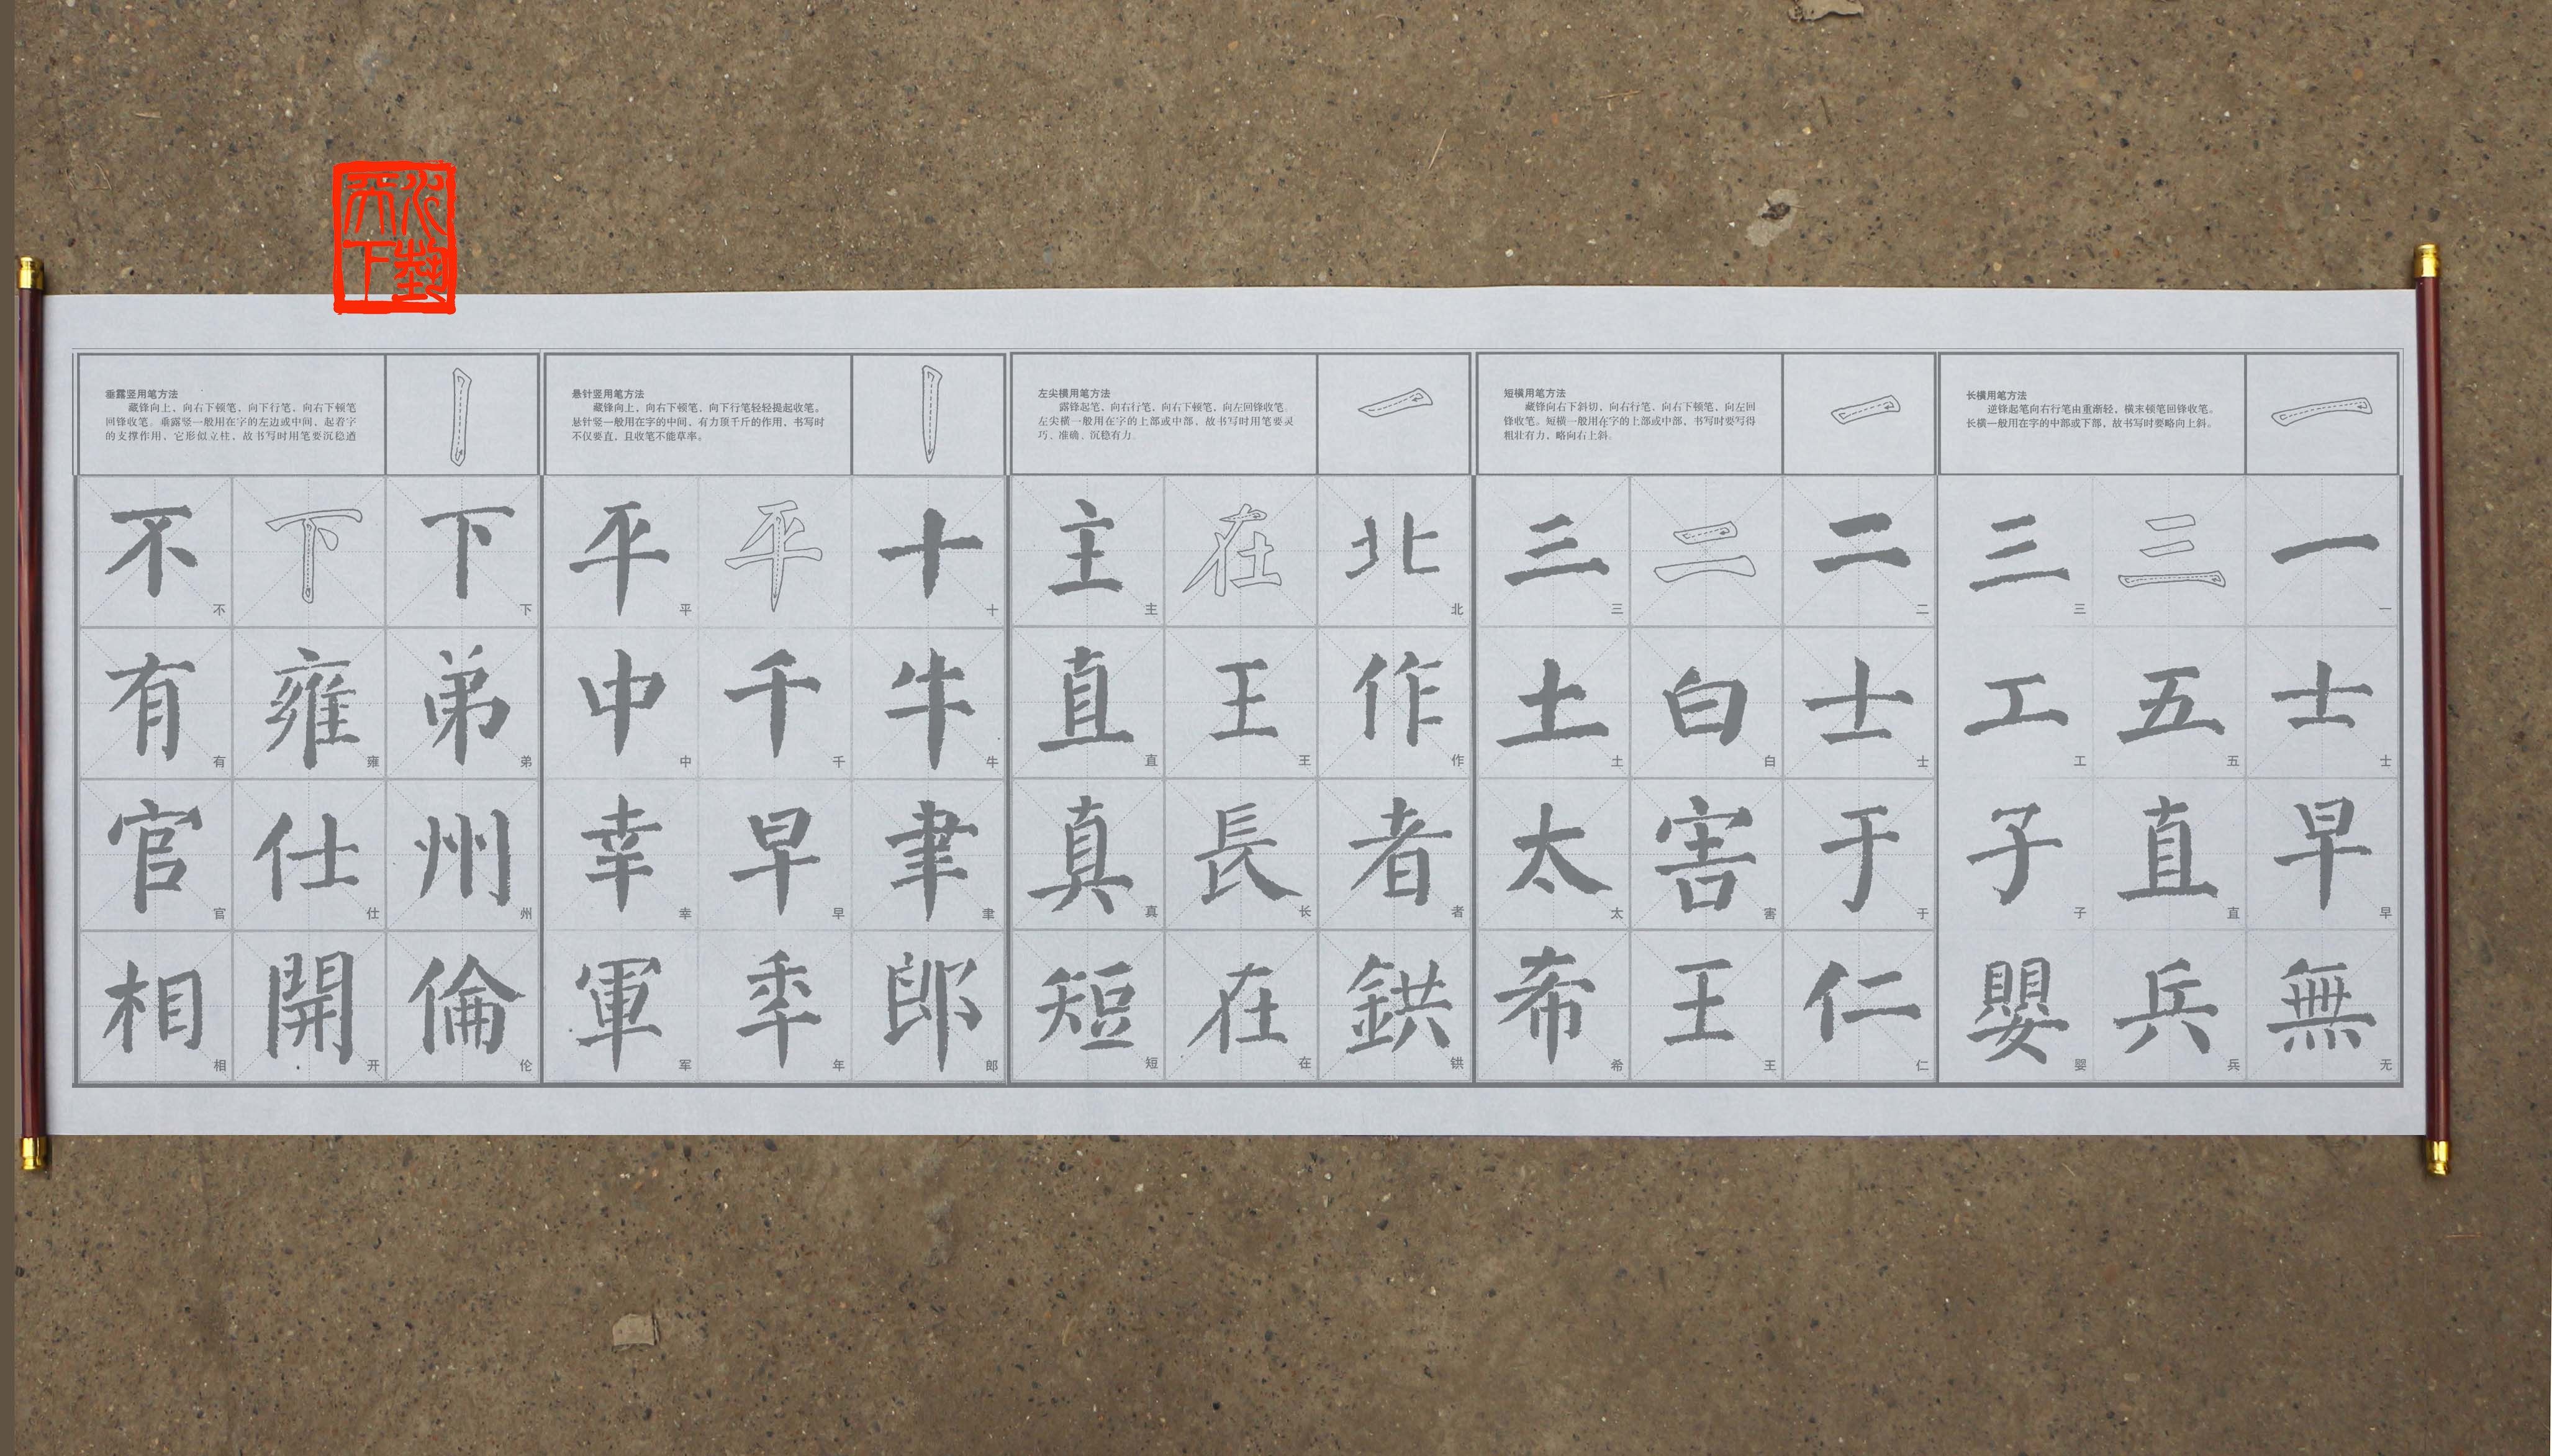 长横用笔方法
逆锋起笔向右行笔由重渐轻，横末顿笔回锋收笔。
长横一般用在字的中部或下部，故书写时要略向上斜。
一 三 三
一 三
士 五 工
士 五 工
早 直 子
早 直 子
無 兵 嬰
无 兵 婴
短横用笔方法
藏锋向右下斜切，向右行笔、向右下顿笔，向左回
锋收笔。短横一般用在字的上部或中部，书写时要写得
粗壮有力，略向右上斜。
二 二 三
二 三
士 白 土
士 白 土
于 害 太
于 害 太
仁 王 希
仁 王 希
左尖横用笔方法
露锋起笔、向右行笔、向右下顿笔，向左回锋收笔。
左尖横一般用在字的上部或中部，故书写时用笔要灵
巧、准确、沉稳有力。
北 在 主
北 主
作 王 直
作 王 直
者 長 真
者 长 真
鉷 在 短
𫓯 在 短
悬针竖用笔方法
藏锋向上，向右下顿笔，向下行笔轻轻提起收笔。
悬针竖一般用在字的中间，有力顶千斤的作用，书写时
不仅要直，且收笔不能草率。
十 平 平
十 平
牛 千 中
牛 千 中
聿 早 幸
聿 早 幸
郎 年 軍
郎 年 军
垂露竖用笔方法
藏锋向上，向右下顿笔，向下行笔，向右下顿笔
回锋收笔。垂露竖一般用在字的左边或中间，起着字
的支撑作用，它形似立柱，故书写时用笔要沉稳遒
下 下 不
下 不
弟 雍 有
弟 雍 有
州 仕 官
州 仕 官
倫 開 相
伦 开 相